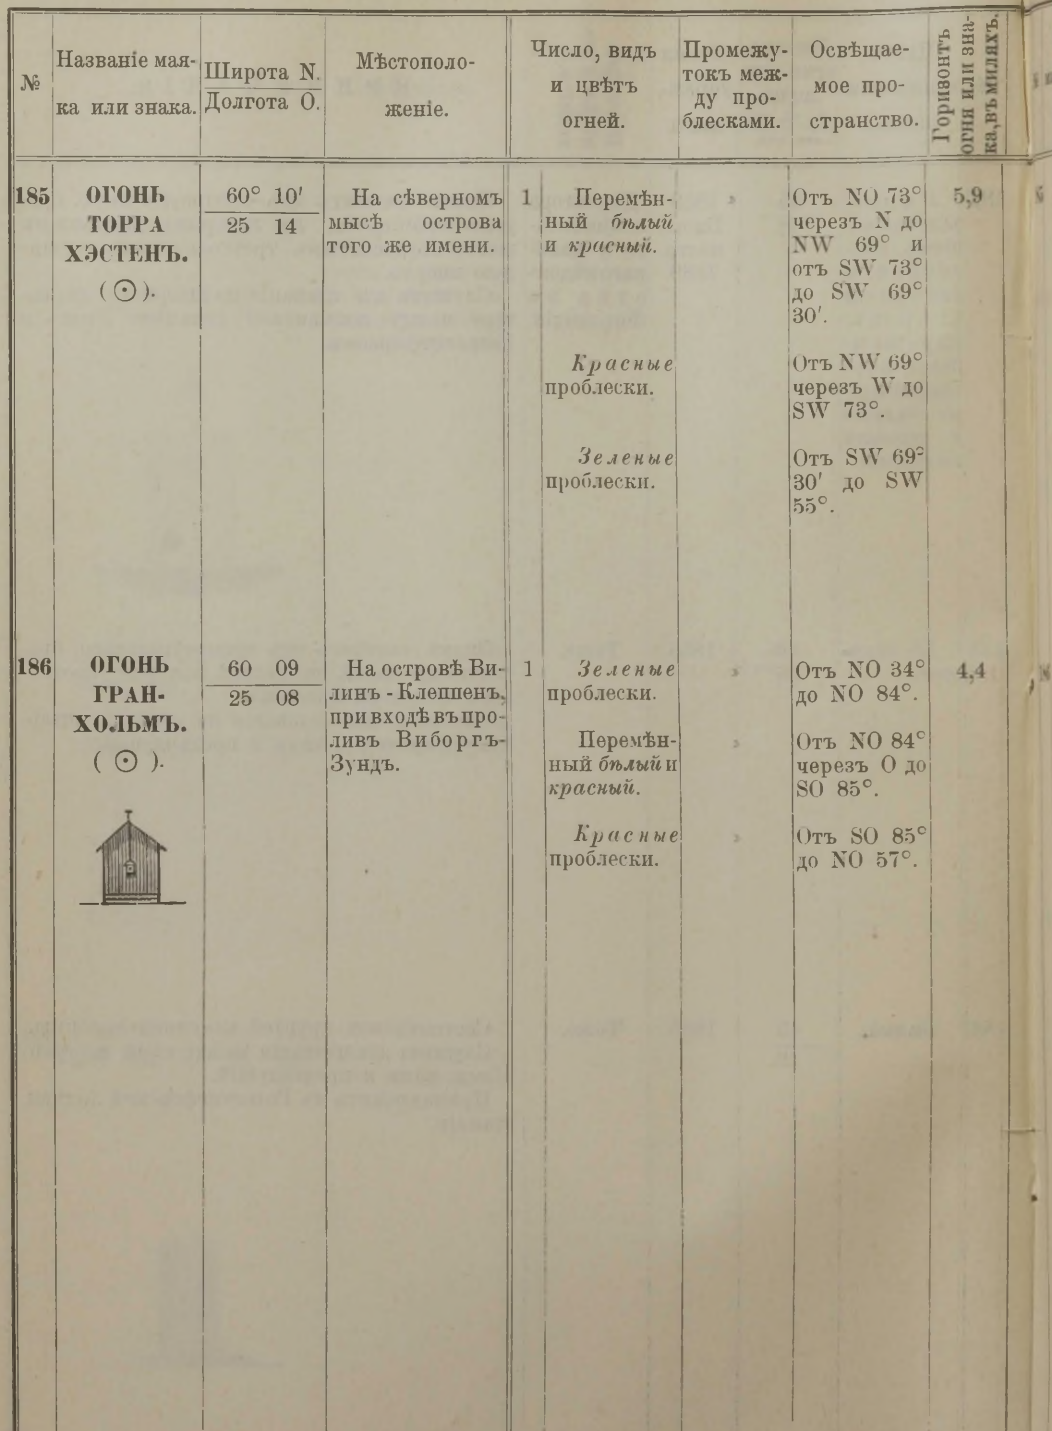 №
Названіе мая-
ка или знака.
Широта N.
Долгота O.
Мѣстополо-
женіе.
Число, видъ
и цвѣтъ
огней.
Промежу-
токъ меж-
ду про-
блесками.
Освѣщае-
мое про-
странство.
Горизонтъ
огня или зна-
ка, въ миляхъ.
185
ОГОНЬ
ТОРРА
ХЭСТЕНЪ.
(☉).
60° 10′
25 14
На сѣверномъ
мысѣ острова
того же имени.
1
Перемѣн-
ный бѣлый
и красный.
»
Отъ NO 73°
черезъ N до
NW 69° и
отъ SW 73°
до SW 69°
30′.
5,9
Красные
проблески.
Отъ NW 69°
черезъ W до
SW 73°.
Зеленые
проблески.
Отъ SW 69°
30′ до SW
55°.
186
ОГОНЬ
ГРАН-
ХОЛЬМЪ.
(☉).
60 09
25 08
На островѣ Ви-
линъ-Клеппенъ,
при входѣ въ про-
ливъ Виборгъ-
Зундъ.
1
Зеленые
проблески.
»
Отъ NO 34°
до NO 84°.
4,4
Перемѣн-
ный бѣлый и
красный.
»
Отъ NO 84°
черезъ O до
SO 85°.
Красные
проблески.
»
Отъ SO 85°
до NO 57°.